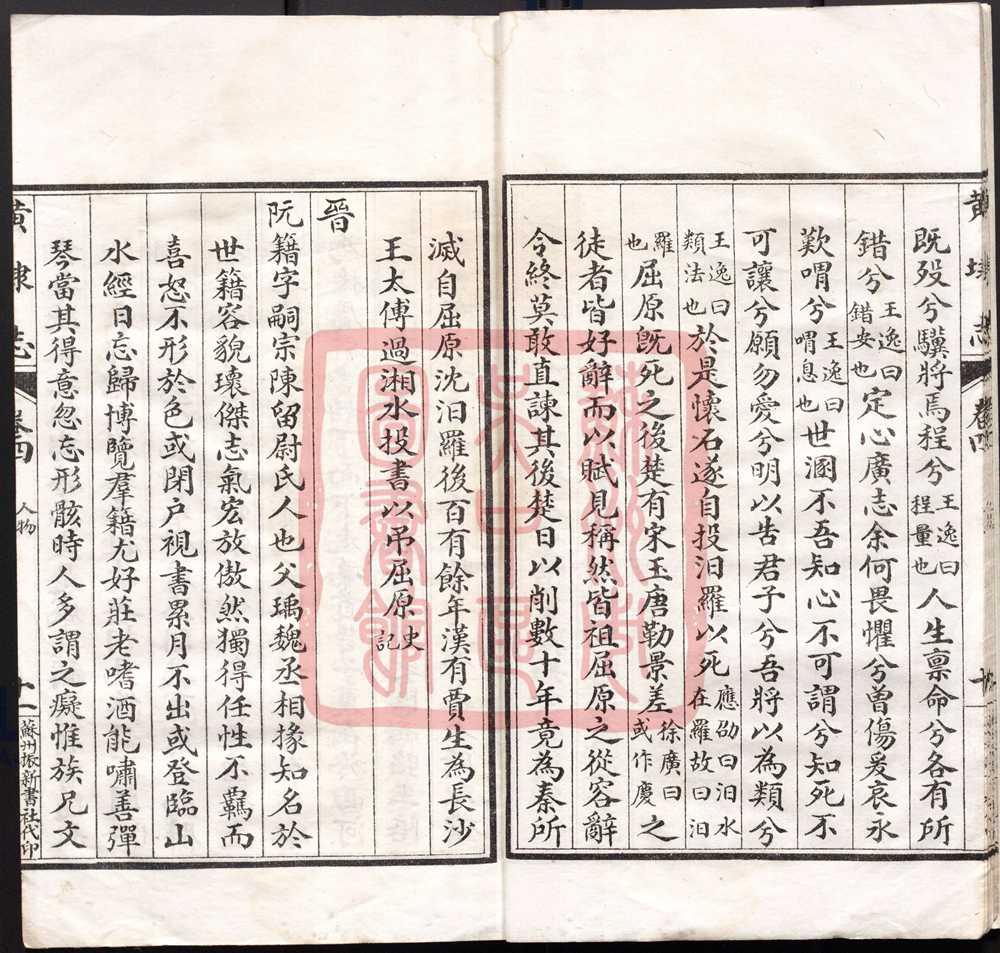 既歿兮驥將焉程兮王逸曰程量也人生禀命兮各有所
錯兮王逸曰錯安也定心廣志余何畏懼兮曾傷爰哀永
歎喟兮王逸曰喟息也世溷不吾知心不可謂兮知死不
可讓兮願勿愛兮明以告君子兮吾將以為類兮
王逸曰類法也於是懷石遂自投汨羅以死應劭曰汨水在羅故曰汨
羅也屈原既死之後楚有宋玉唐勒景差徐廣曰或作慶之
徒者皆好辭而以賦見稱然皆祖屈原之從容辭
令終莫敢直諫其後楚日以削數十年竟為秦所
滅自屈原沈汨羅後百有餘年漢有賈生為長沙
王太傅過湘水投書以弔屈原史記
晉
阮籍字嗣宗陳留尉氏人也父瑀魏丞相掾知名於
世籍容貌瓌傑志氣宏放傲然獨得任性不羈而
喜怒不形於色或閉户視書累月不出或登臨山
水經日忘歸博覽羣籍尤好莊老嗜酒能嘯善彈
琴當其得意忽忘形骸時人多謂之癡惟族兄文
黄埭志
卷四
人物
十一
蘇州振新書社代印